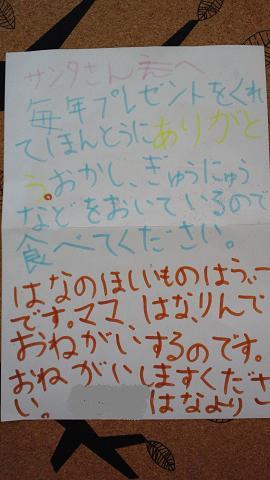 サンタさんへ
毎年プレゼントをくれ
てほんとうにありがと
う。おかし、ぎゅうにゅう
などをおいているので
食べてください。
はなのほしいものはう、一
です。ママ、はな、りんで
おねがいするのです。
おねがいしますくださ
い。 はなより